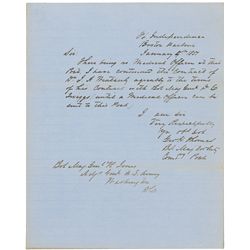 Ft. Independence
Boston Harbor
January 5th 1857
Sir
There being no Medical Officer at this
Post, I have continued the Contract of
Dr. J. A. agreeably to the terms
of his Contract with Bvt. Maj. Genl. D. E.
Twiggs, until a Medical Officer can be
sent to this Post.
I am Sir
Very Respectfully
Yr. Obt. Svt.
Geo. H. Thomas
Bvt. Maj.
Comdg. Post
Bvt. Maj. Genl. R. Jones
Adjt. Genl. U.S. Army
Washington
D.C.